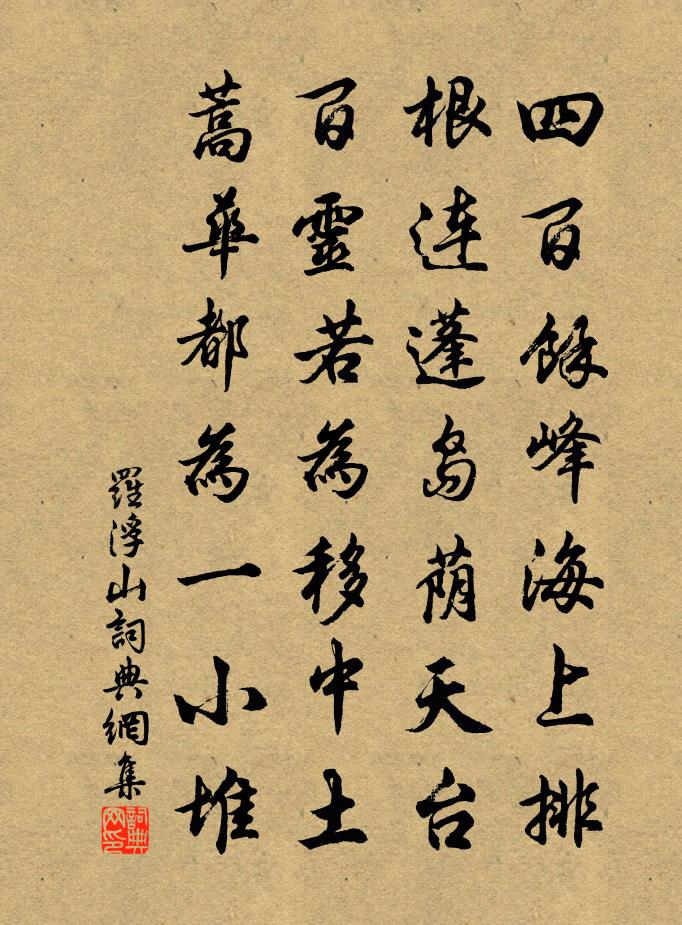 四百餘峰海上排
根連蓬島荫天台
百靈若為移中土
蒿華都為一小堆
羅浮山詞典網集
詞典
网印